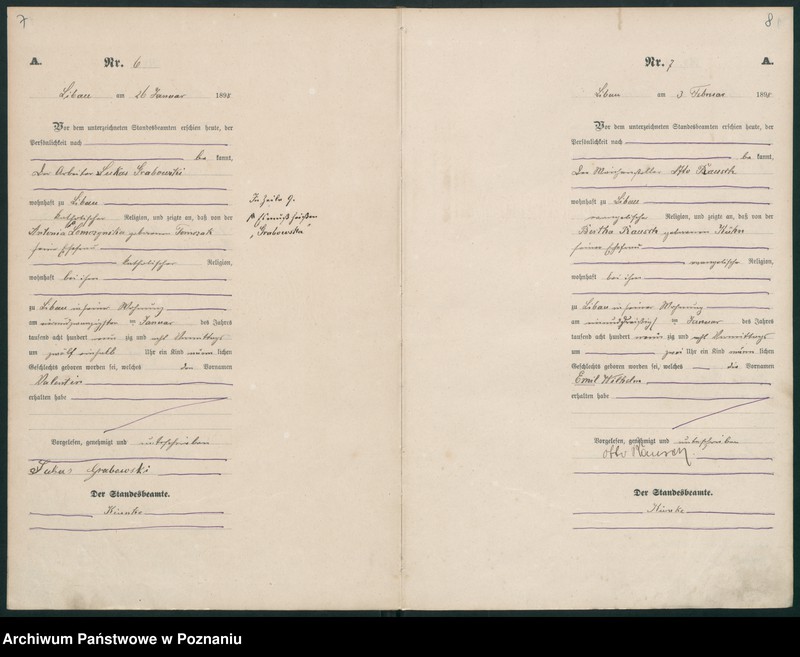 7
A.
Nr. 6
Libau am 26 Januar 1898
Vor dem unterzeichneten Standesbeamten erschien heute, der
Persönlichkeit nach
be kannt,
Der Arbeiter Lukas Grabowski
wohnhaft zu Libau
katholischer Religion, und zeigte an, daß von der
Antonia geborenen Tomczak
seiner Ehefrau
katholischer Religion,
wohnhaft bei ihm
zu Libau in seiner Wohnung
am einundzwanzigsten ten Januar des Jahres
tausend acht hundert neun zig und acht Vormittags
um zwölf einhalb Uhr ein Kind männ lichen
Geschlechts geboren worden sei, welches den Vornamen
Valentin
erhalten habe
Vorgelesen, genehmigt und unterschrieben
Lukas Grabowski
Der Standesbeamte.
In Zeile 9.
"Grabowska"
8
Nr. 7
A.
Libau am 3 Februar 1898
Vor dem unterzeichneten Standesbeamten erschien heute, der
Persönlichkeit nach
be kannt,
Der Otto Rausch
wohnhaft zu Libau
evangelischer Religion, und zeigte an, daß von der
Bertha Rausch geborenen Kühn
seiner Ehefrau
evangelischer Religion,
wohnhaft bei ihm
zu Libau in seiner Wohnung
am einunddreißigsten ten Januar des Jahres
tausend acht hundert neun zig und acht Vormittags
um zwei Uhr ein Kind männ lichen
Geschlechts geboren worden sei, welches die Vornamen
Emil Wilhelm
erhalten habe
Vorgelesen, genehmigt und unterschrieben
Otto Rausch
Der Standesbeamte.
Archiwum Państwowe w Poznaniu